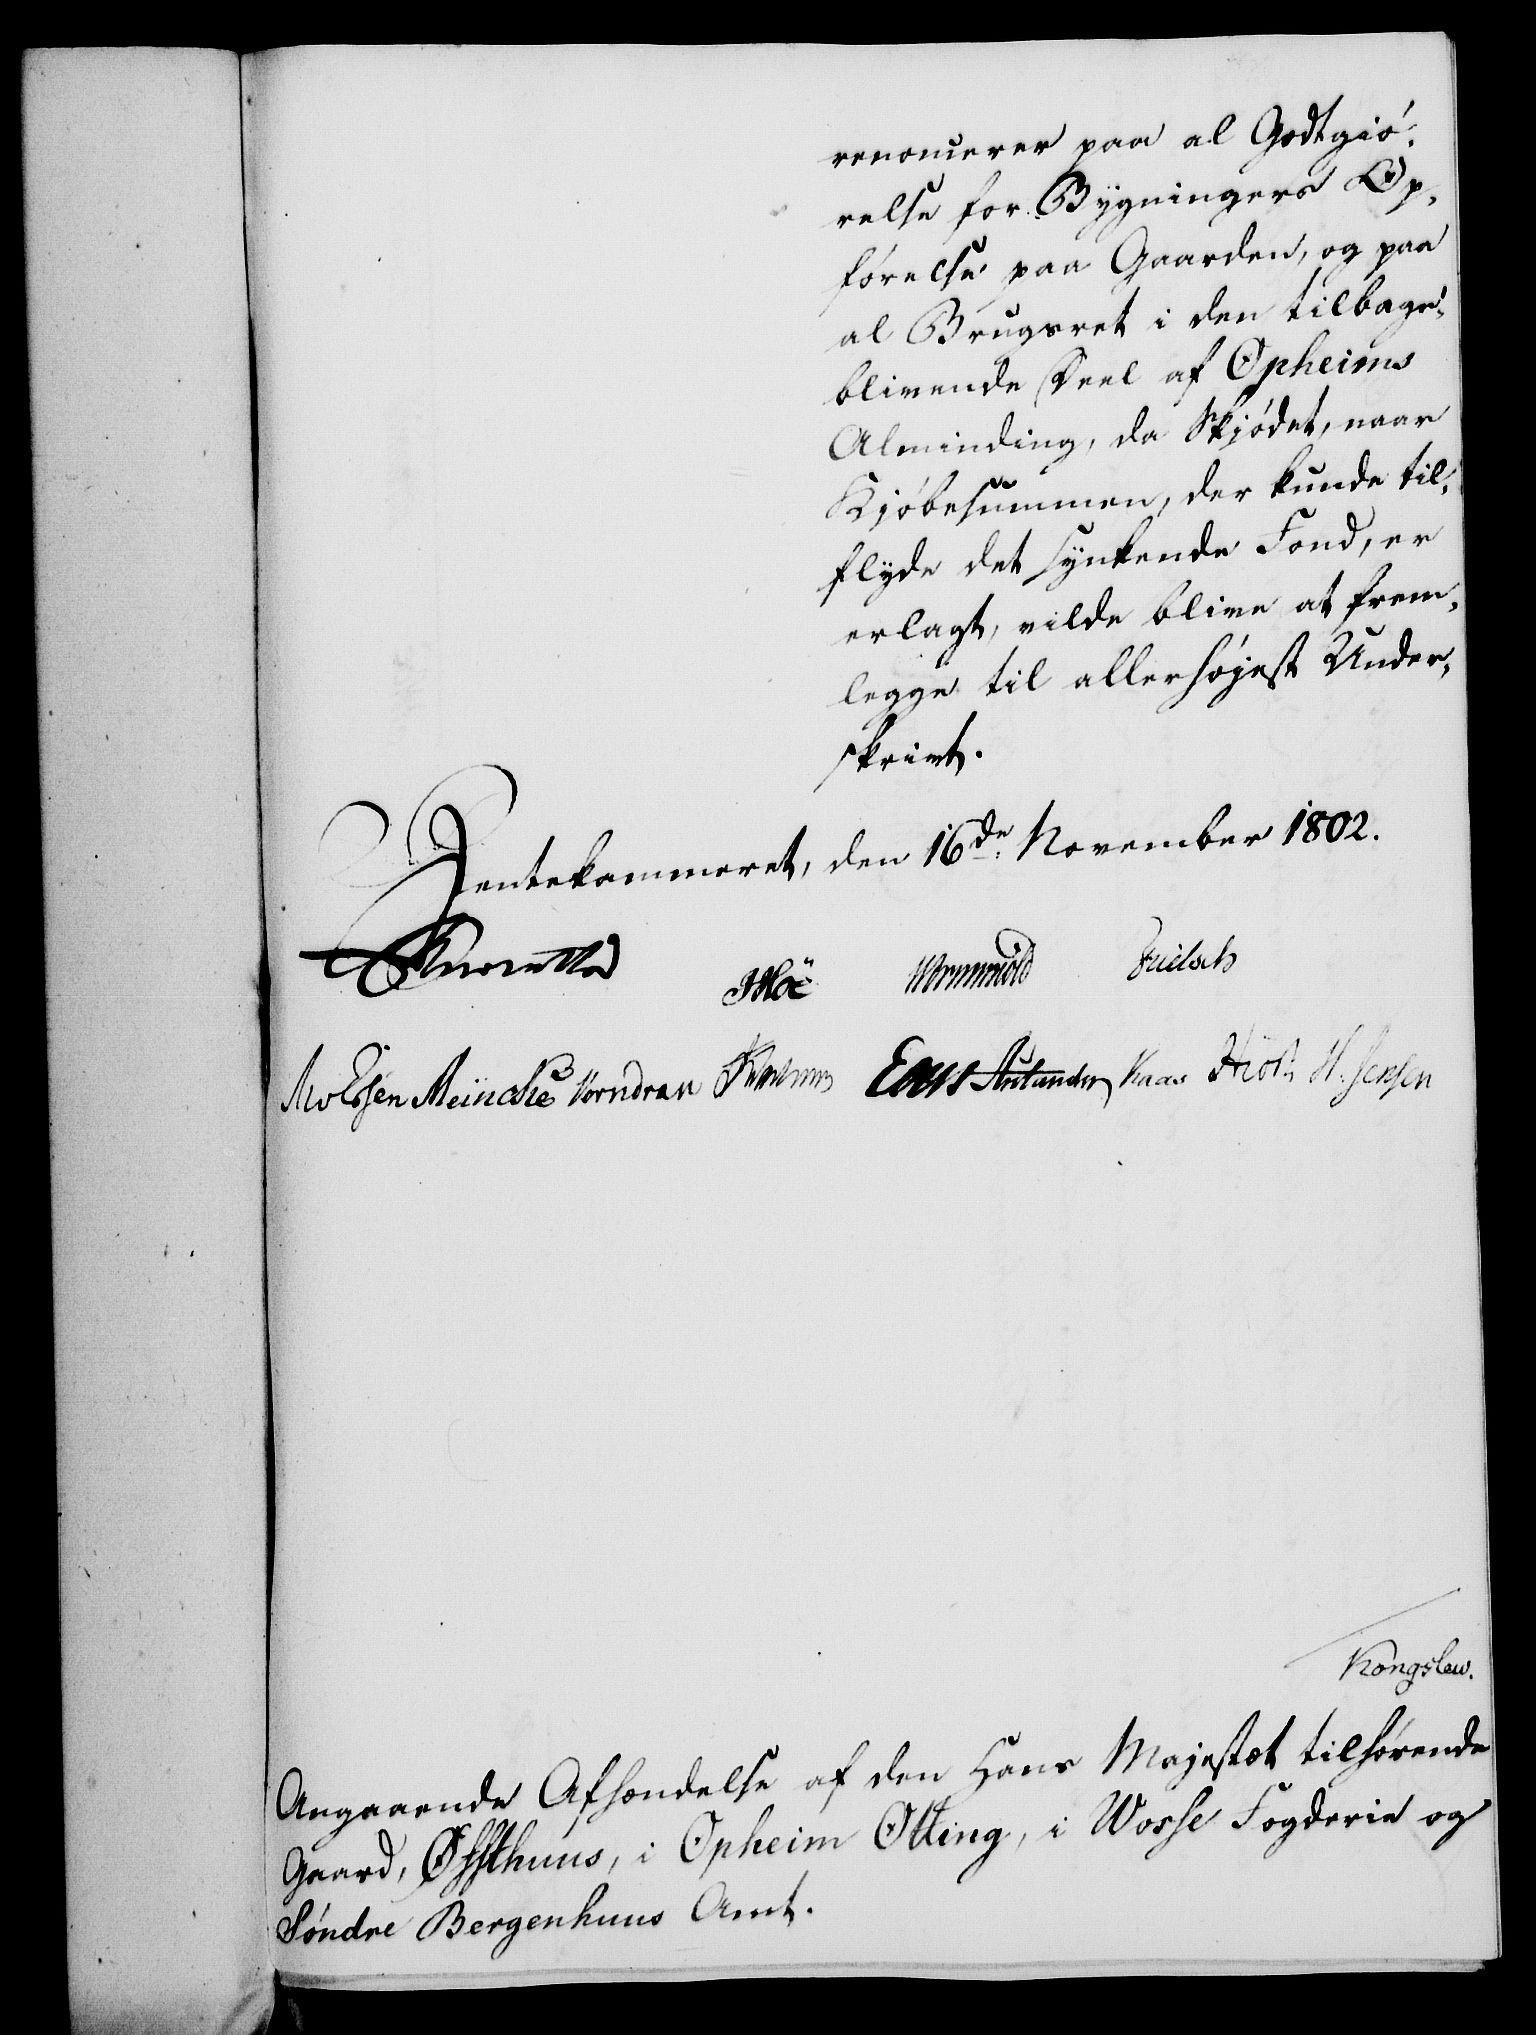 renoncerer paa al Godtgiö,
relse for Bygningers Op,
förelse paa Gaarden, og paa
al Brugsret i den tilbage,
blivende Deel af Opheims
Alminding, da Skjödet, naar
Kjöbesummen, der kunde til,
flyde det synkende Fond, er
erlagt, vilde blive at frem,
legge til allerhöjest Under,
skrivt.
Rentekammeret, den 16de November 1802.
Reventlow
Wormskiold
Meincke Vorndran Kaas H. Jensen
Kongslew.
Angaaende Afhændelse af den Hans Majestæt tilhörende
Gaard, Østhuus, i Opheim Otting, i Wosse Fogderie og
Söndre Bergenhuus Amt.